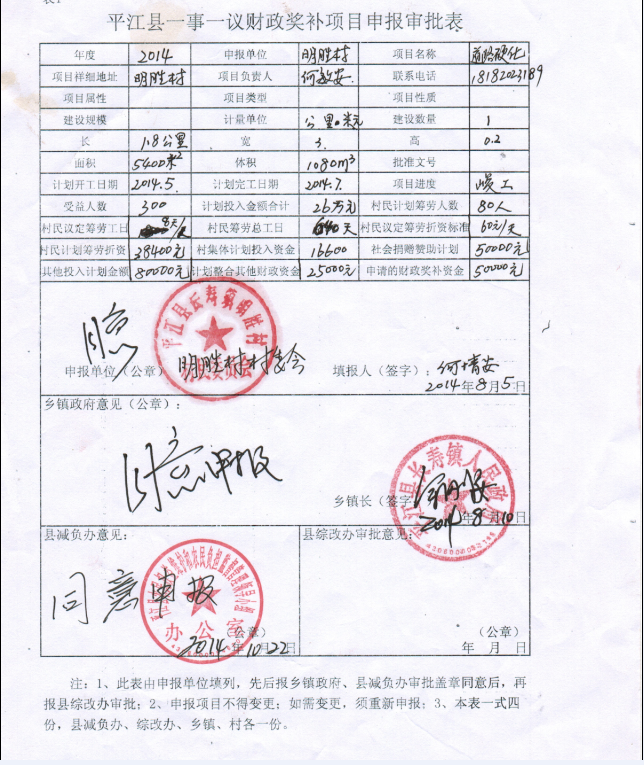 平江县一事一议财政奖补项目申报审批表
年度 2014 申报单位 明胜村 项目名称 道路硬化
项目样细地址 明胜村 项目负责人 联系电话 18182023189
项目属性 项目类型 项目性质
建设规模 计量单位 公里 建设数量 1
长 1.8公里 宽 3. 高 0.2
面积 5400米² 体积 1080m³ 批准文号
计划开工日期 2014.5. 计划完工日期 2014.7. 项目进度 竣工
受益人数 300 计划投入金额合计 26万元 村民计划筹劳人数 80人
村民议定筹劳工日 8天/ 村民筹劳总工日 640天 村民议定筹劳折资标准 60元/天
村民计划筹劳折资 38400元 村集体计划投入资金 16600 社会捐赠赞助计划 50000元
其他投入计划金额 80000元 计划整合其他财政资金 25000元 申请的财政奖补资金 50000元
同意
平江县长寿镇明胜村
村民委员会
申报单位(公章) 明胜村村委会 填报人(签字):
2014年8月5日
乡镇政府意见(公章):
同意申报
平江县长寿镇人民政府
乡镇长(签字
2014年8月10日
县减负办意见: 县综改办审批意见:
同意申报
办公室
(公章) (公章)
2014年10月22日 年 月 日
注:1、此表由申报单位填列,先后报乡镇政府、县减负办审批盖章同意后,再
报县综改办审批;2、申报项目不得变更;如需变更,须重新申报;3、本表一式四
份,县减负办、综改办、乡镇、村各一份。